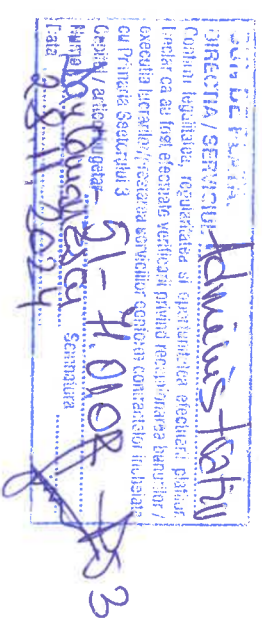 BUN DE PLATA
DIRECTIA / SERVICIUL Administrativ
Confirm legalitatea, regularitatea si oportunitatea efectuarii platilor,
inclusiv ca au fost efectuate verificari privind receptionarea bunurilor /
executia lucrarilor/prestarea serviciilor conform contractelor incheiate
cu Primaria Sectorului 3
Capitol articol bugetar 51-
Numele Semnatura
Data 28.11.2024
3